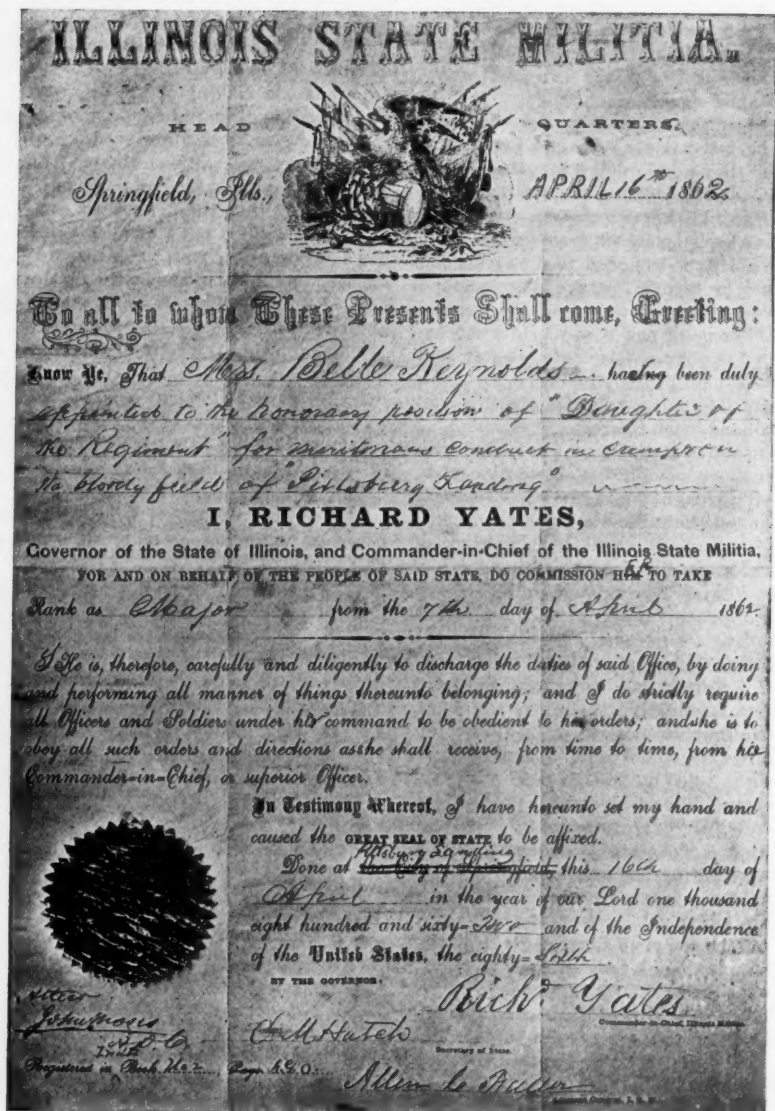 ILLINOIS STATE MILITIA.
HEAD QUARTERS.
Springfield, Ills., APRIL 16th 1862
To all to whom These Presents Shall come, Greeting:
Know Ye, That Mrs. Belle Reynolds having been duly
appointed to the honorary position of "Daughter of
the Regiment" for meritorious conduct in camp & on
the bloody field of "Pittsburg Landing"
I, RICHARD YATES,
Governor of the State of Illinois, and Commander-in-Chief of the Illinois State Militia,
FOR AND ON BEHALF OF THE PEOPLE OF SAID STATE, DO COMMISSION HER TO TAKE
Rank as Major from the 7th day of April 1862.
SHe is, therefore, carefully and diligently to discharge the duties of said Office, by doing
and performing all manner of things thereunto belonging; and I do strictly require
all Officers and Soldiers under her command to be obedient to her orders; and she is to
obey all such orders and directions as she shall receive, from time to time, from his
Commander=in=Chief, or superior Officer.
In Testimony Whereof, I have hereunto set my hand and
caused the GREAT SEAL OF STATE to be affixed.
Pittsburg Landing
Done at the City of Springfield, this 16th day of
April in the year of our Lord one thousand
eight hundred and sixty=Two and of the Independence
of the United States, the eighty=Sixth
BY THE GOVERNOR:
Richd Yates
Commander-in-Chief, Illinois Militia.
Attest
John Moses
O M Hatch
Secretary of State.
Registered in Book No 2, Page A.G.O.
Allen C Fuller
Adjutant General, I. S. M.